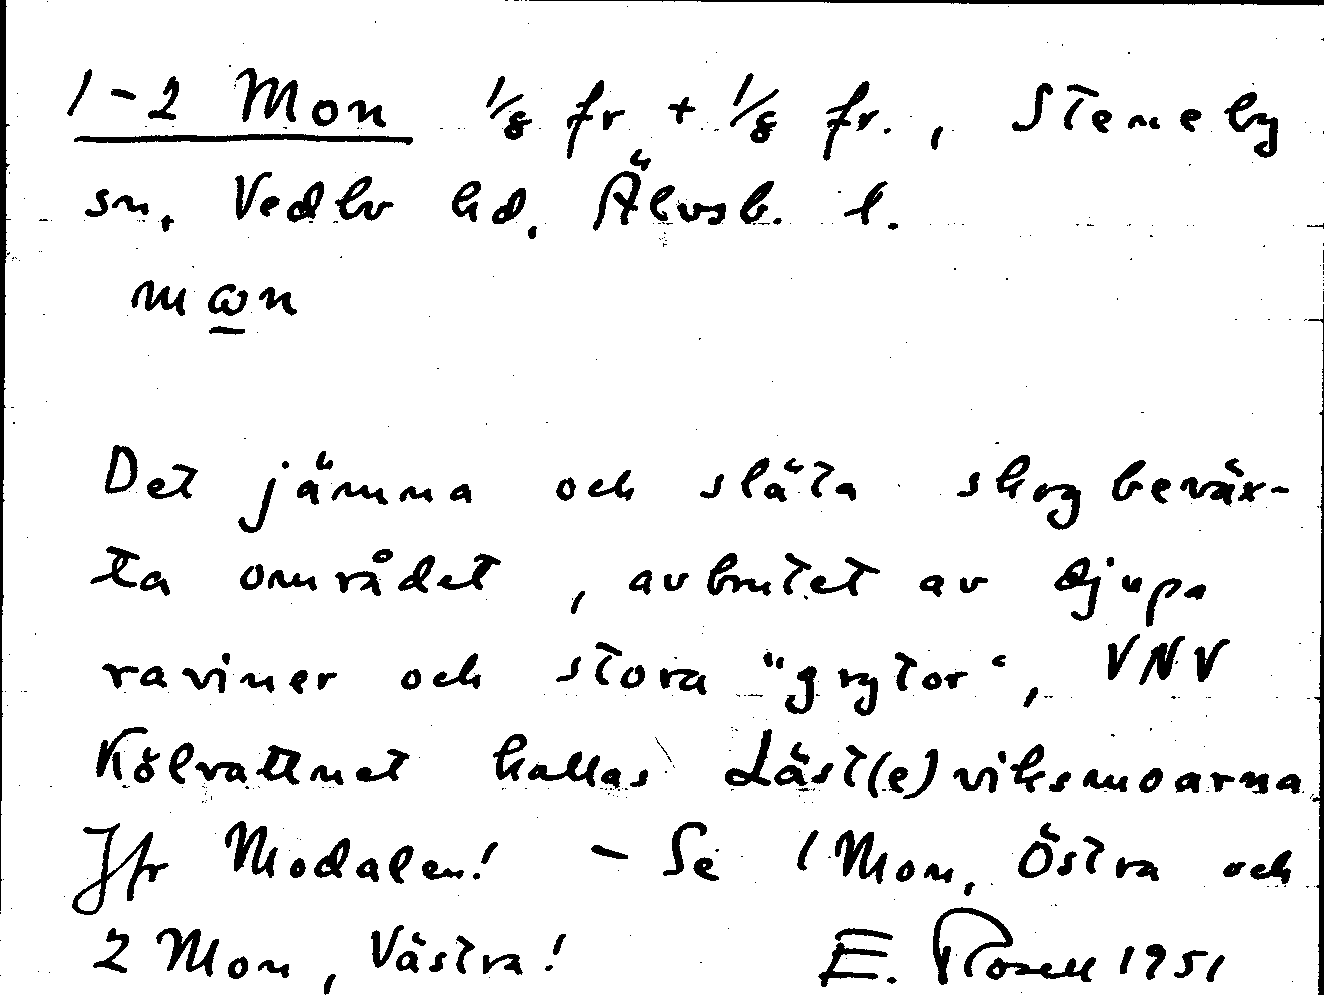 1-2 Mon 1/8 fr + 1/8 fr., Steneby
sn, Vedbo hd, Älvsb. l.
mωn
Det jämna och släta skogbeväx-
ta området, avbrutet av djupa
raviner och stora "grytor", VNV
Kölvattnet kallas Läst(e)viksmoarna
Jfr Modalen! - Se 1 Mon, Östra och
2 Mon, Västra! E. Rosell 1951